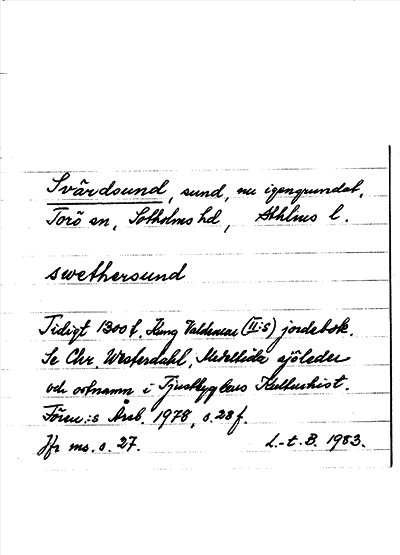 Svärdsund, sund, nu igengrundat,
Torö sn, Sotholms hd, Sthlms l.
swethersund
Tidigt 1300 t, Kung Valdemar (II:s) jordebok.
Se Chr. Westerdahl, Medeltida sjöleder
och ortnamn i Tjustbygdens Kulturhist.
Fören:s Årsb. 1978, s. 28 f.
Jfr ms. s. 27. L.-t. B. 1983.